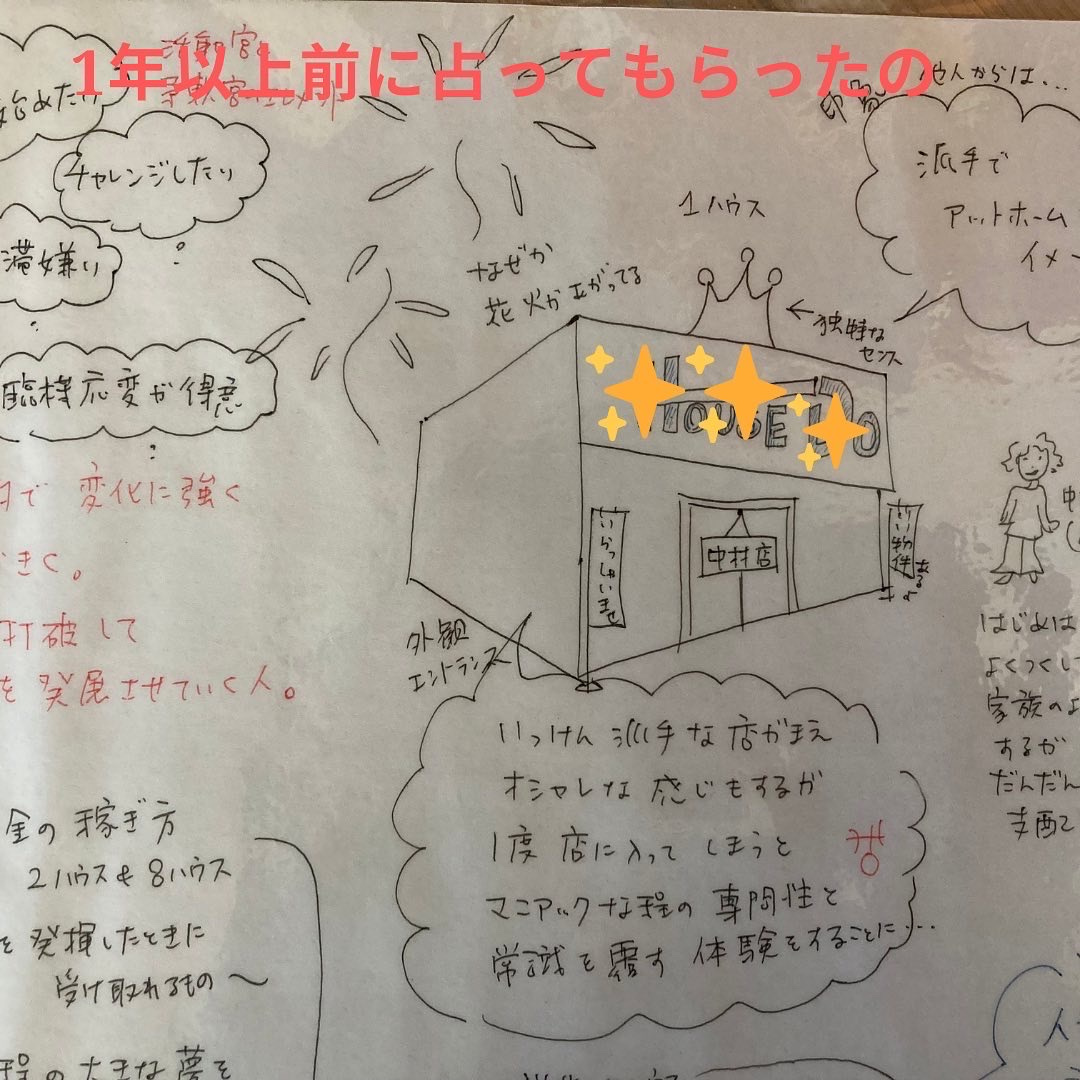 1年以上前に占ってもらったの
始めたり
チャレンジしたり
滞嫌い
臨機応変が得意
で 変化に強く
きく。
打破して
を発展させていく人。
印象
他人からは…
派手で
アットホーム
イメー
1ハウス
なぜか
花火があがってる
←独特な
センス
HOUSE DO
いらっしゃいませ
中村店
いい物件
あるよ
外観
エントランス
中
はじめは
よくつくし
家族の
するが
だんだん
支配
いっけん 派手な店がまえ
オシャレな感じもするが
1度 店に入ってしまうと
マニアックな程の専門性と
常識を覆す体験をすることに…
♅
金の稼ぎ方
2ハウス&8ハウス
を発揮したときに
受け取れるもの〜
程の大きな夢を
人